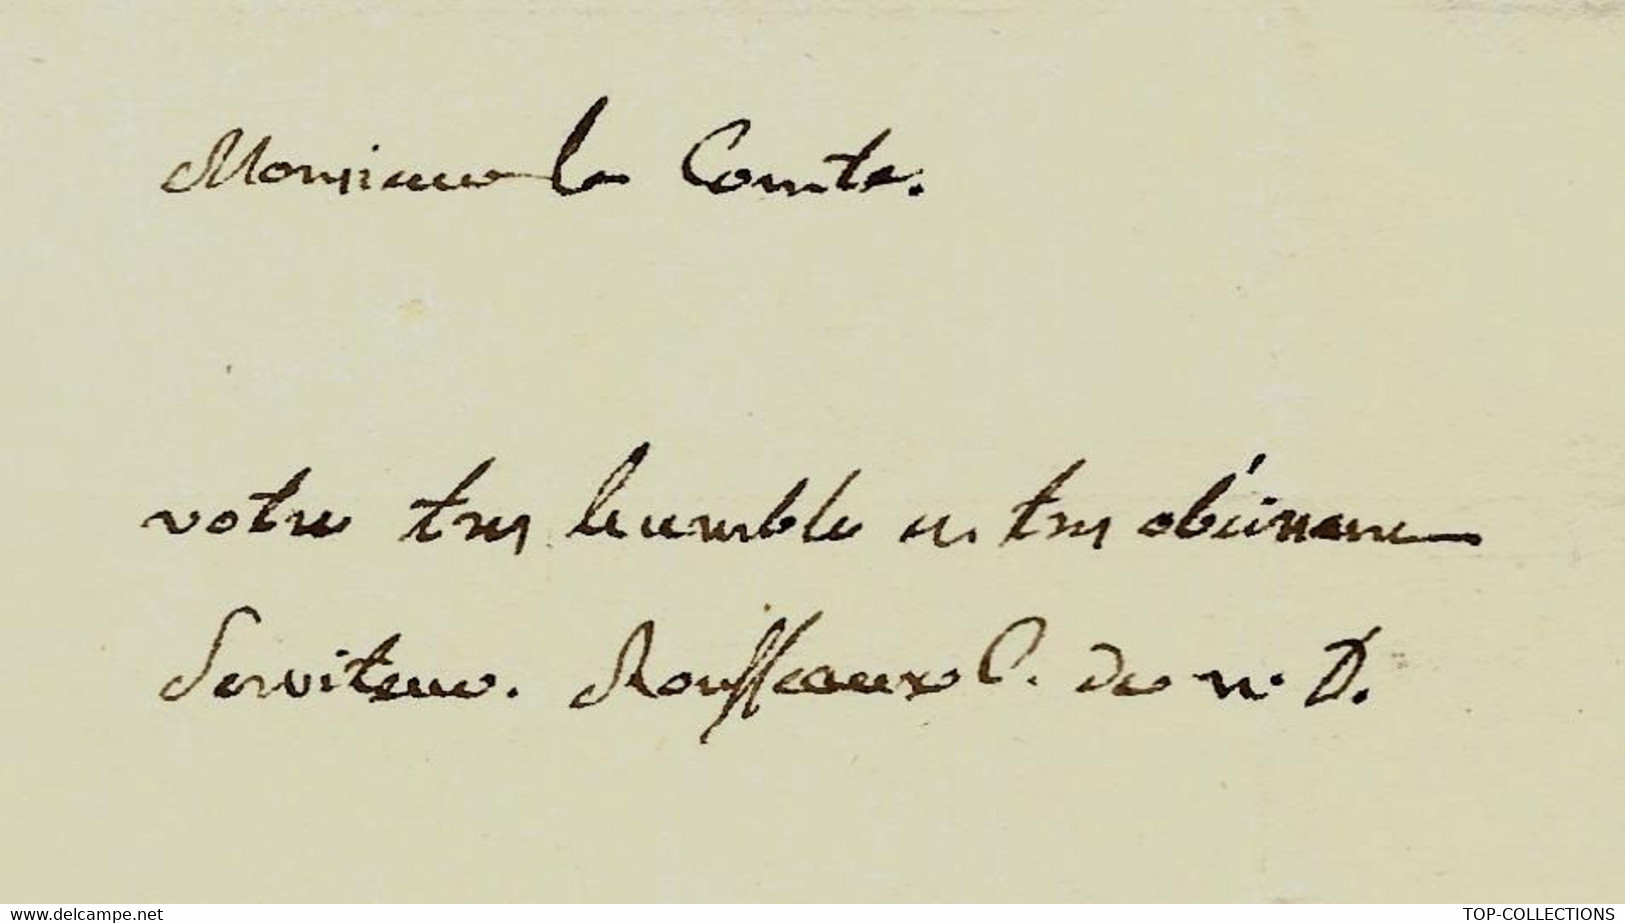 Monsieur le Comte.
votre tres humble et tres obéissant
Serviteur. Rousseaux C. de N. D.
www.delcampe.net
TOP-COLLECTIONS